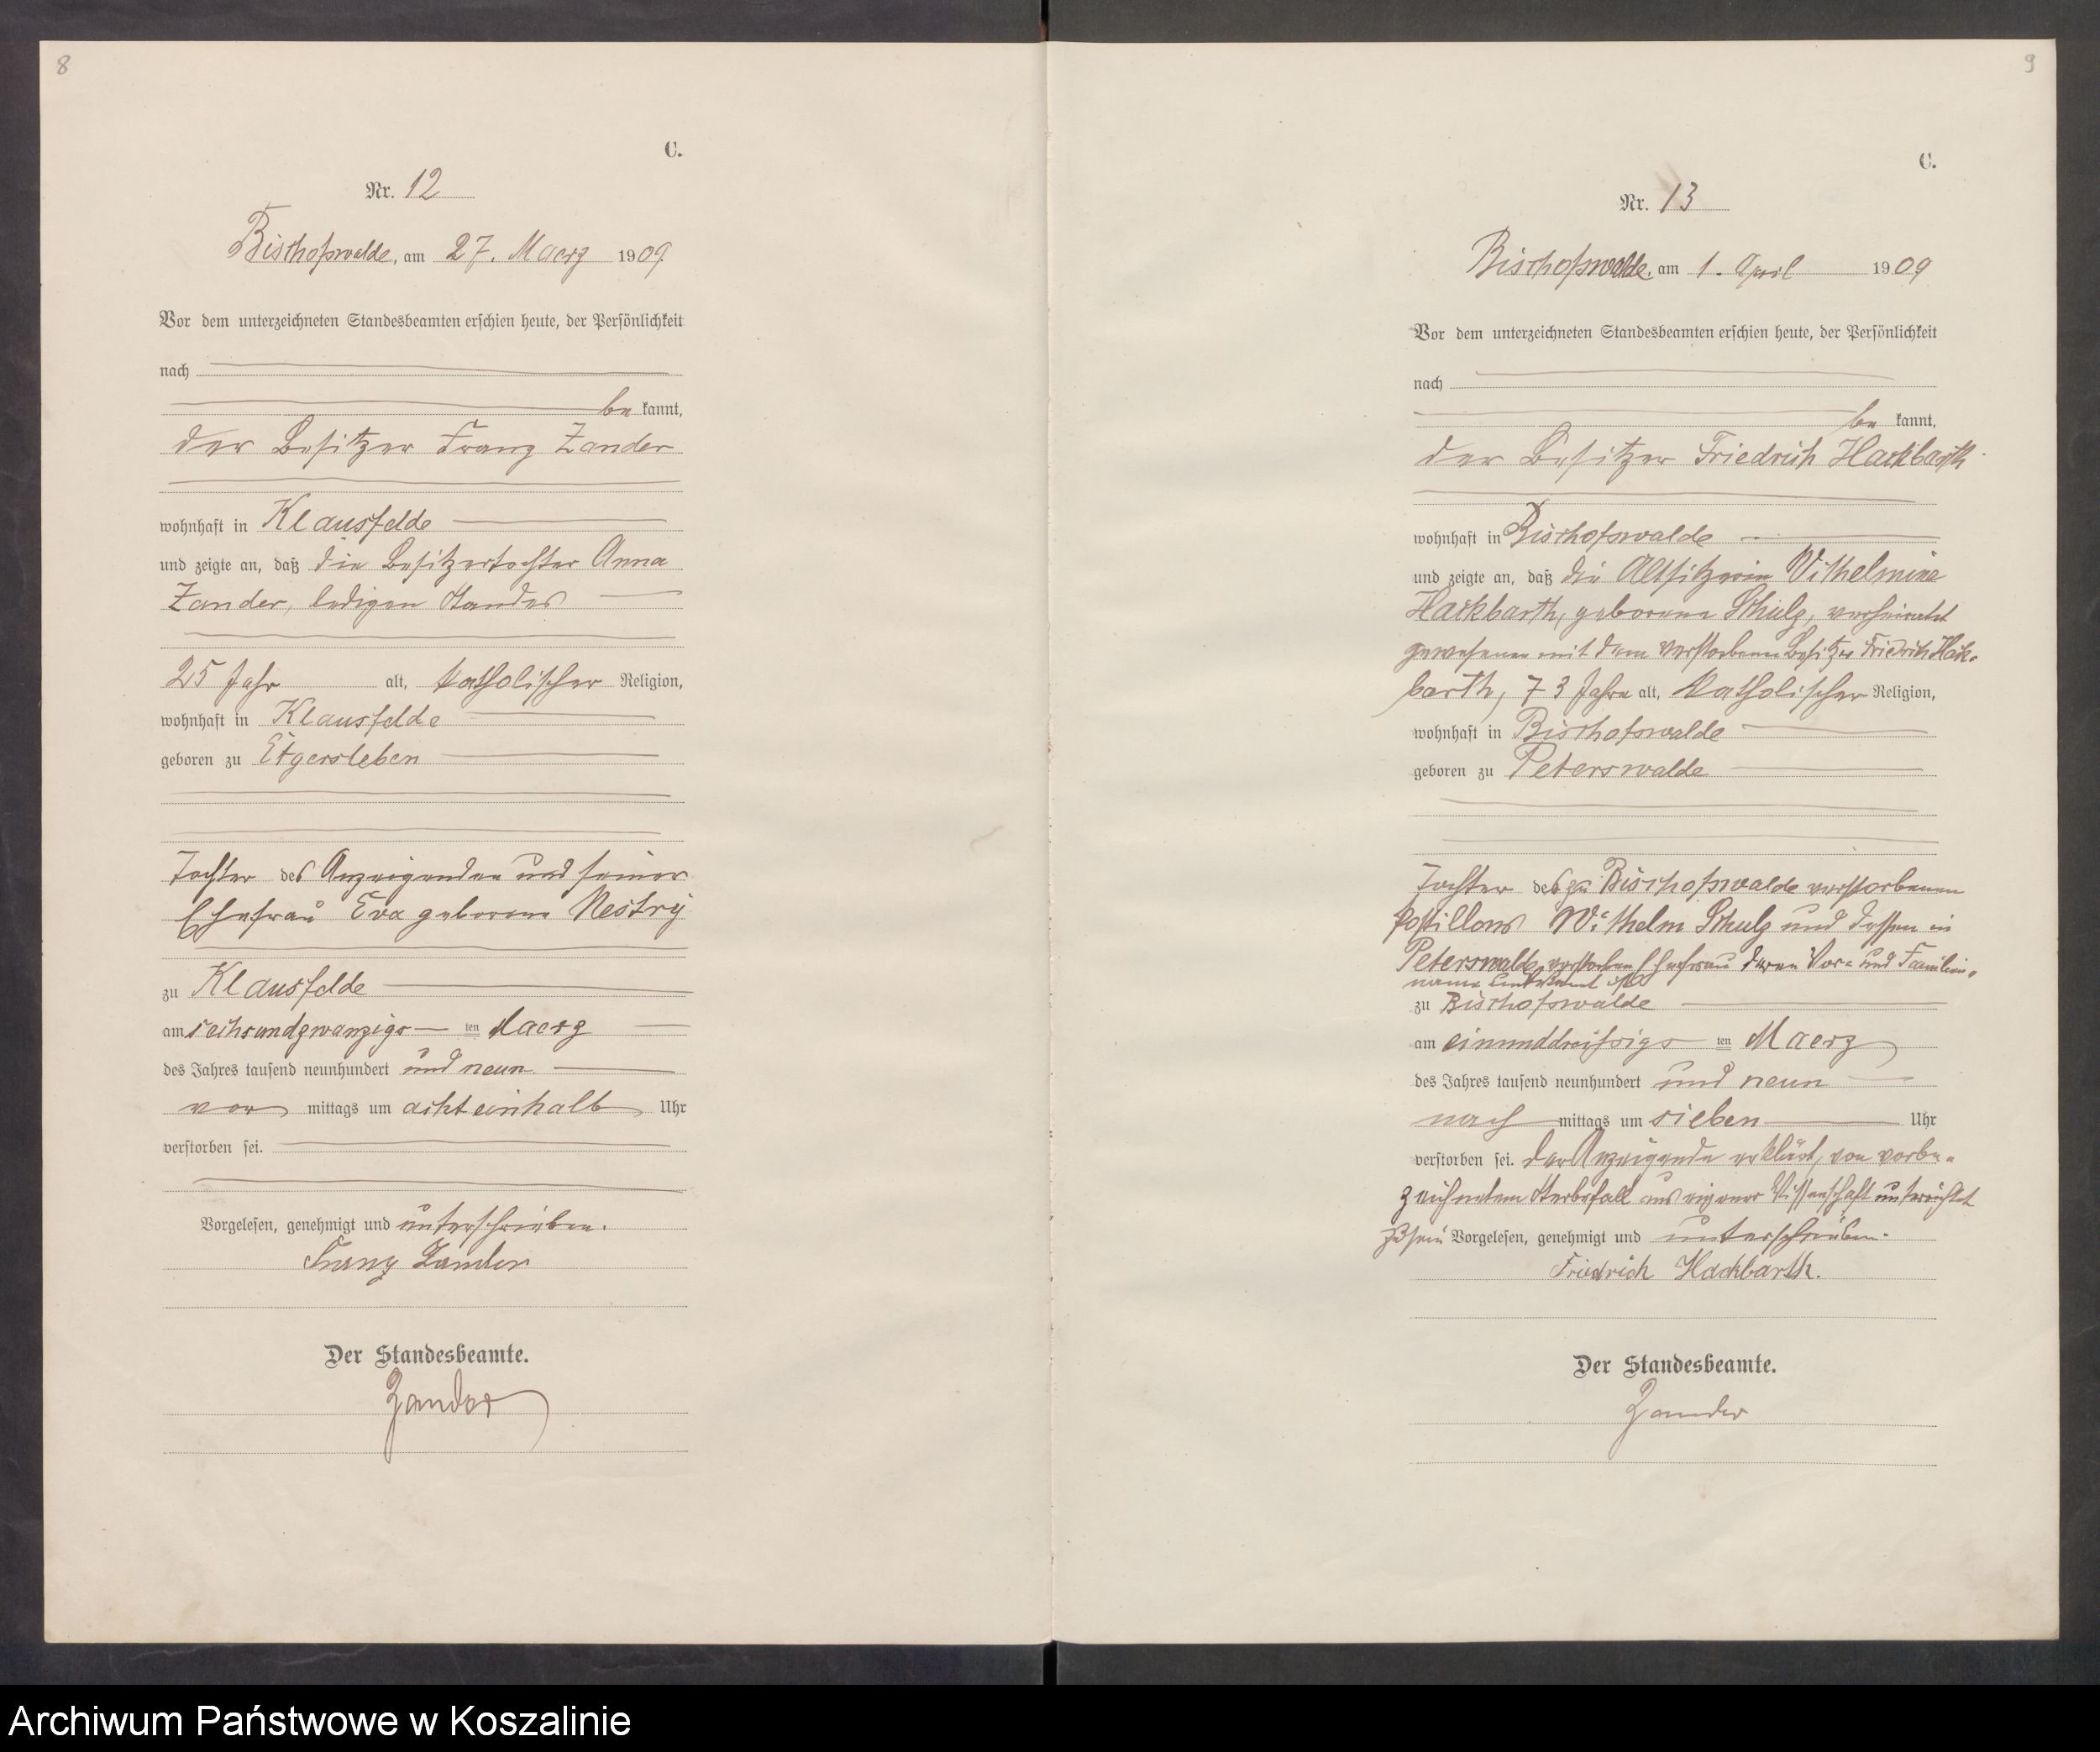 8
C.
Nr. 12
Bischofswalde, am 27. Maerz 1909
Vor dem unterzeichneten Standesbeamten erschien heute, der Persönlichkeit
nach
be kannt,
der Besitzer Franz Zander
wohnhaft in Klausfelde
und zeigte an, daß die Besitzertochter Anna
Zander, ledigen Standes
25 Jahr alt, katholischer Religion,
wohnhaft in Klausfelde
geboren zu Etgersleben
Tochter des Anzeigenden und seiner
Ehefrau Eva geborene Nestry
zu Klausfelde
am sechsundzwanzigs ten Maerz
des Jahres tausend neunhundert und neun
vor mittags um acht einhalb Uhr
verstorben sei.
Vorgelesen, genehmigt und unterschrieben.
Franz Zander
Der Standesbeamte.
Zander
9
C.
Nr. 13
Bischofswalde, am 1. April 1909
Vor dem unterzeichneten Standesbeamten erschien heute, der Persönlichkeit
nach
be kannt,
der Besitzer Friedrich Hackbarth
wohnhaft in Bischofswalde
und zeigte an, daß die Altsitzerin Wilhelmine
Hackbarth, geborene Schulz, verheiratet
gewesene mit dem verstorbenen Besitzer Friedrich Hack-
barth, 73 Jahre alt, katholischer Religion,
wohnhaft in Bischofswalde
geboren zu Peterswalde
Tochter des zu Bischofswalde verstorbenen
Postillons Wilhelm Schulz und dessen in
Peterswalde verstorbenen Ehefrau deren Vor- und Familien-
name unbekannt ist
zu Bischofswalde
am einunddreißigs ten Maerz
des Jahres tausend neunhundert und neun
nach mittags um sieben Uhr
verstorben sei. Der Anzeigende erklärt, von vorbe-
zeichnetem Sterbefall aus eigener Wissenschaft unterrichtet
zu sein Vorgelesen, genehmigt und unterschrieben.
Friedrich Hackbarth.
Der Standesbeamte.
Zander
Archiwum Państwowe w Koszalinie